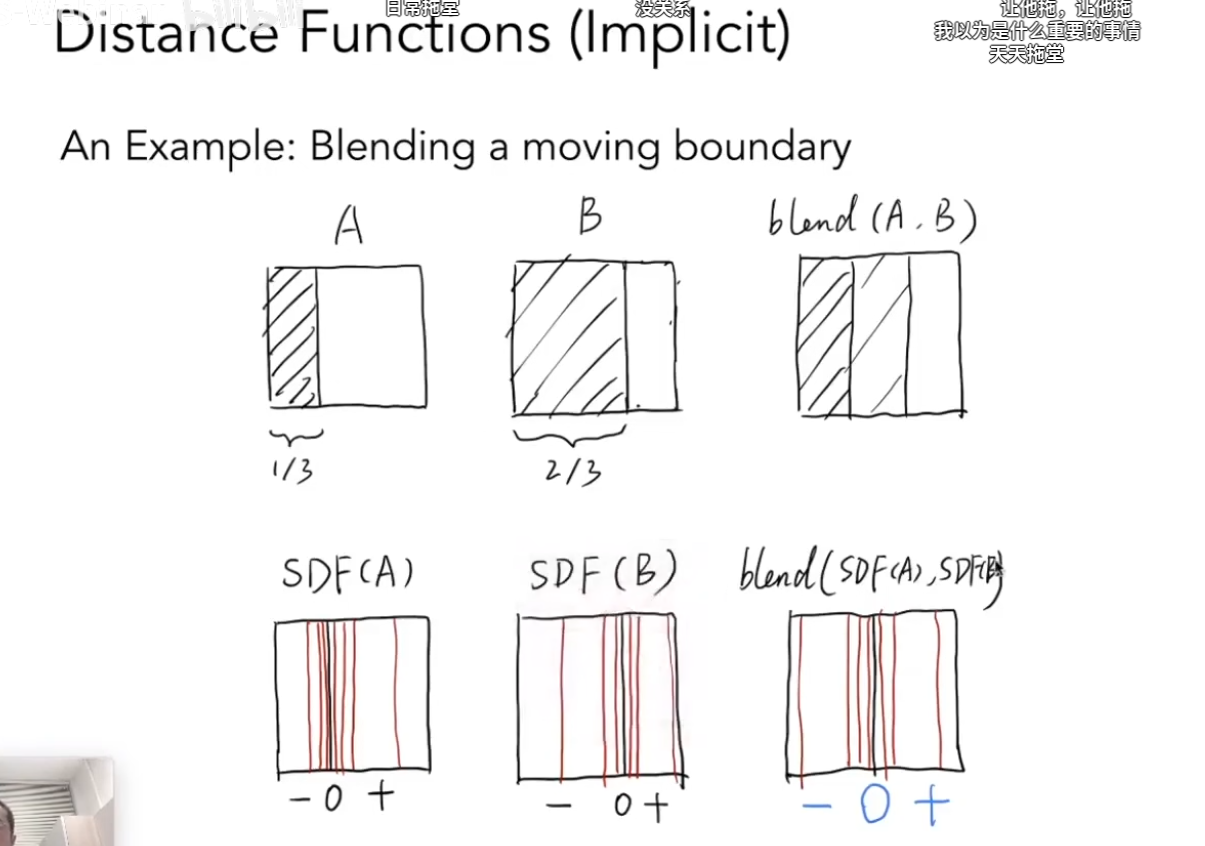 日常拖堂
没关系
让他拖，让他拖
我以为是什么重要的事情
天天拖堂
bilibili
Distance Functions (Implicit)
An Example: Blending a moving boundary
A
B
blend (A, B)
1/3
2/3
SDF(A)
SDF(B)
blend(SDF(A), SDF(B))
- 0 +
- 0 +
- 0 +